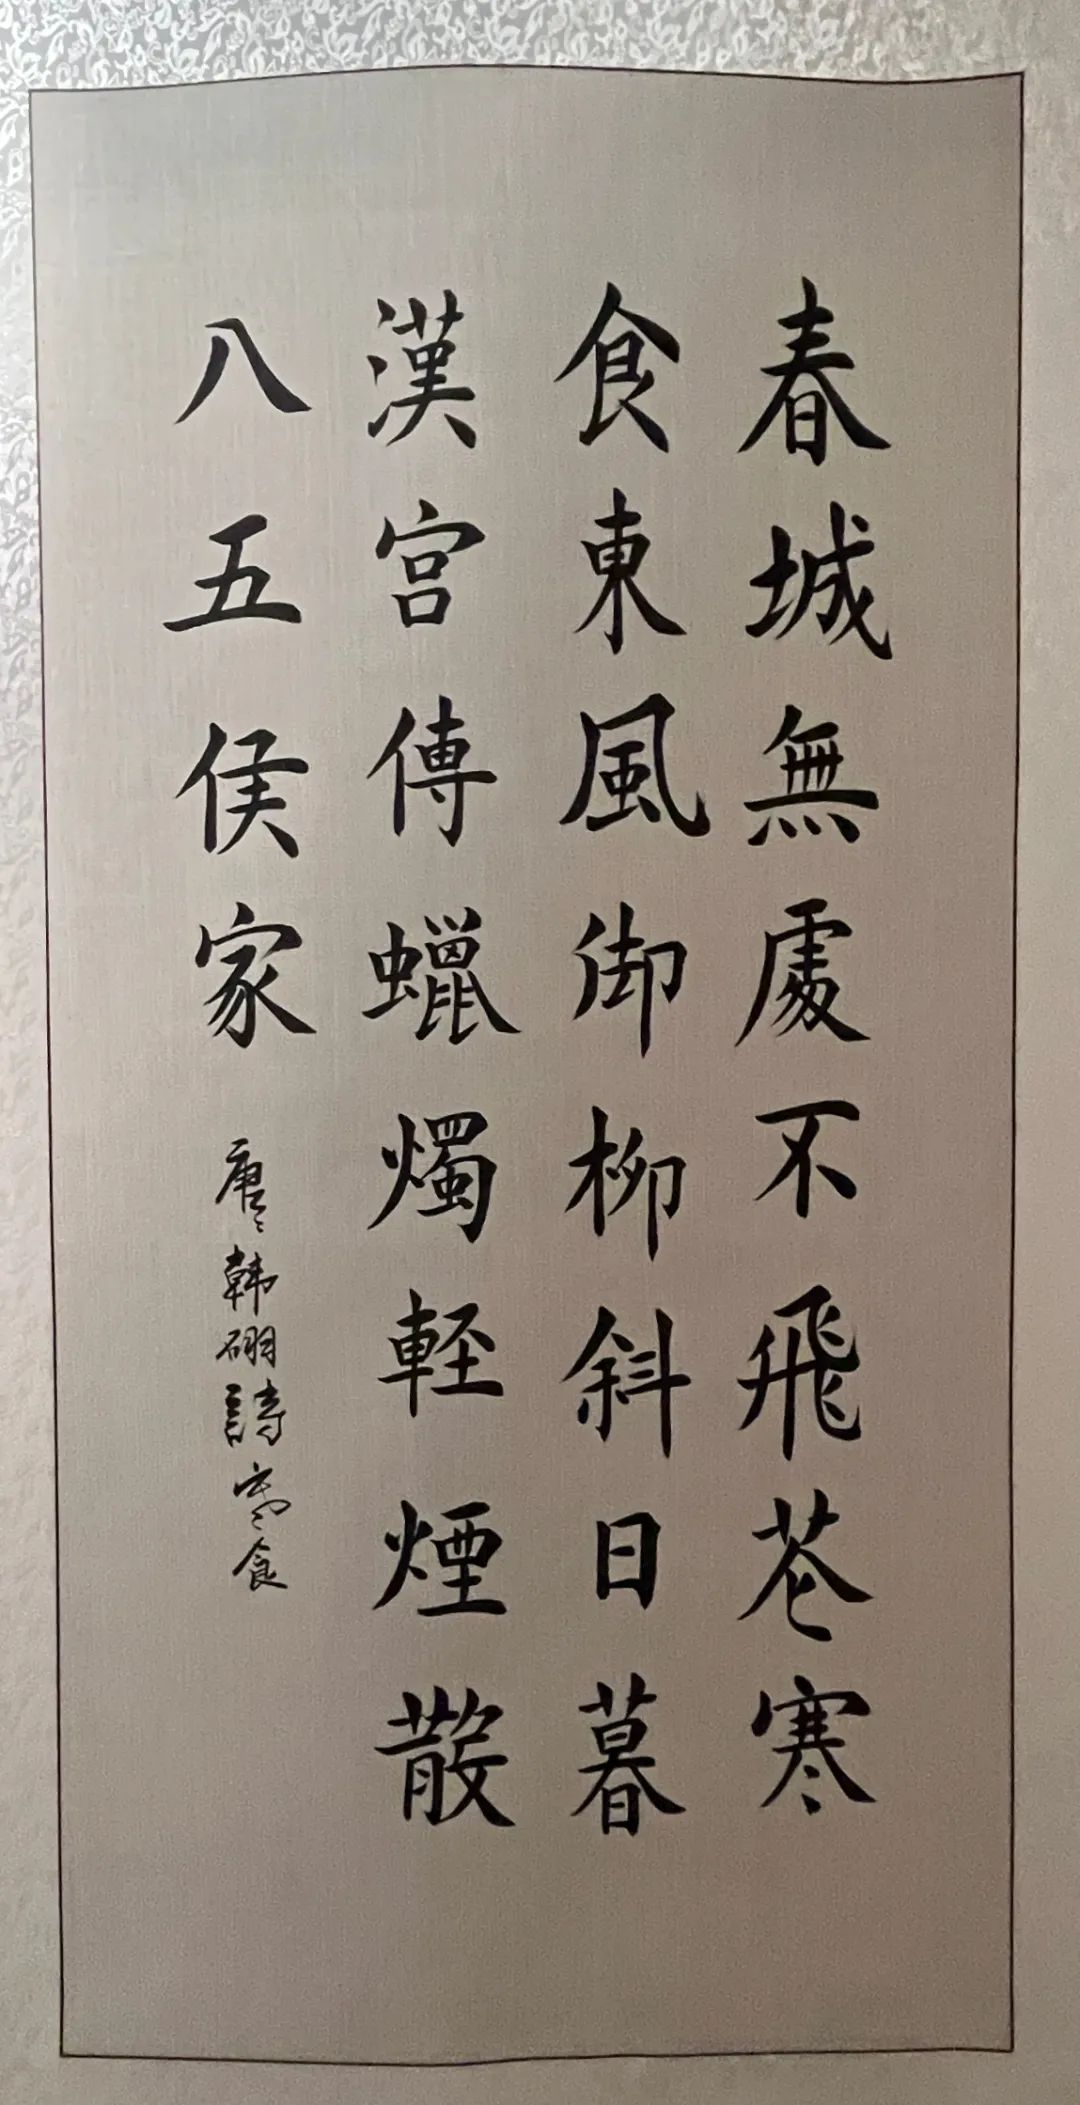 春城無處不飛花寒
食東風御柳斜日暮
漢宮傳蠟燭軽煙散
八五侯家
唐韓硼詩寒食